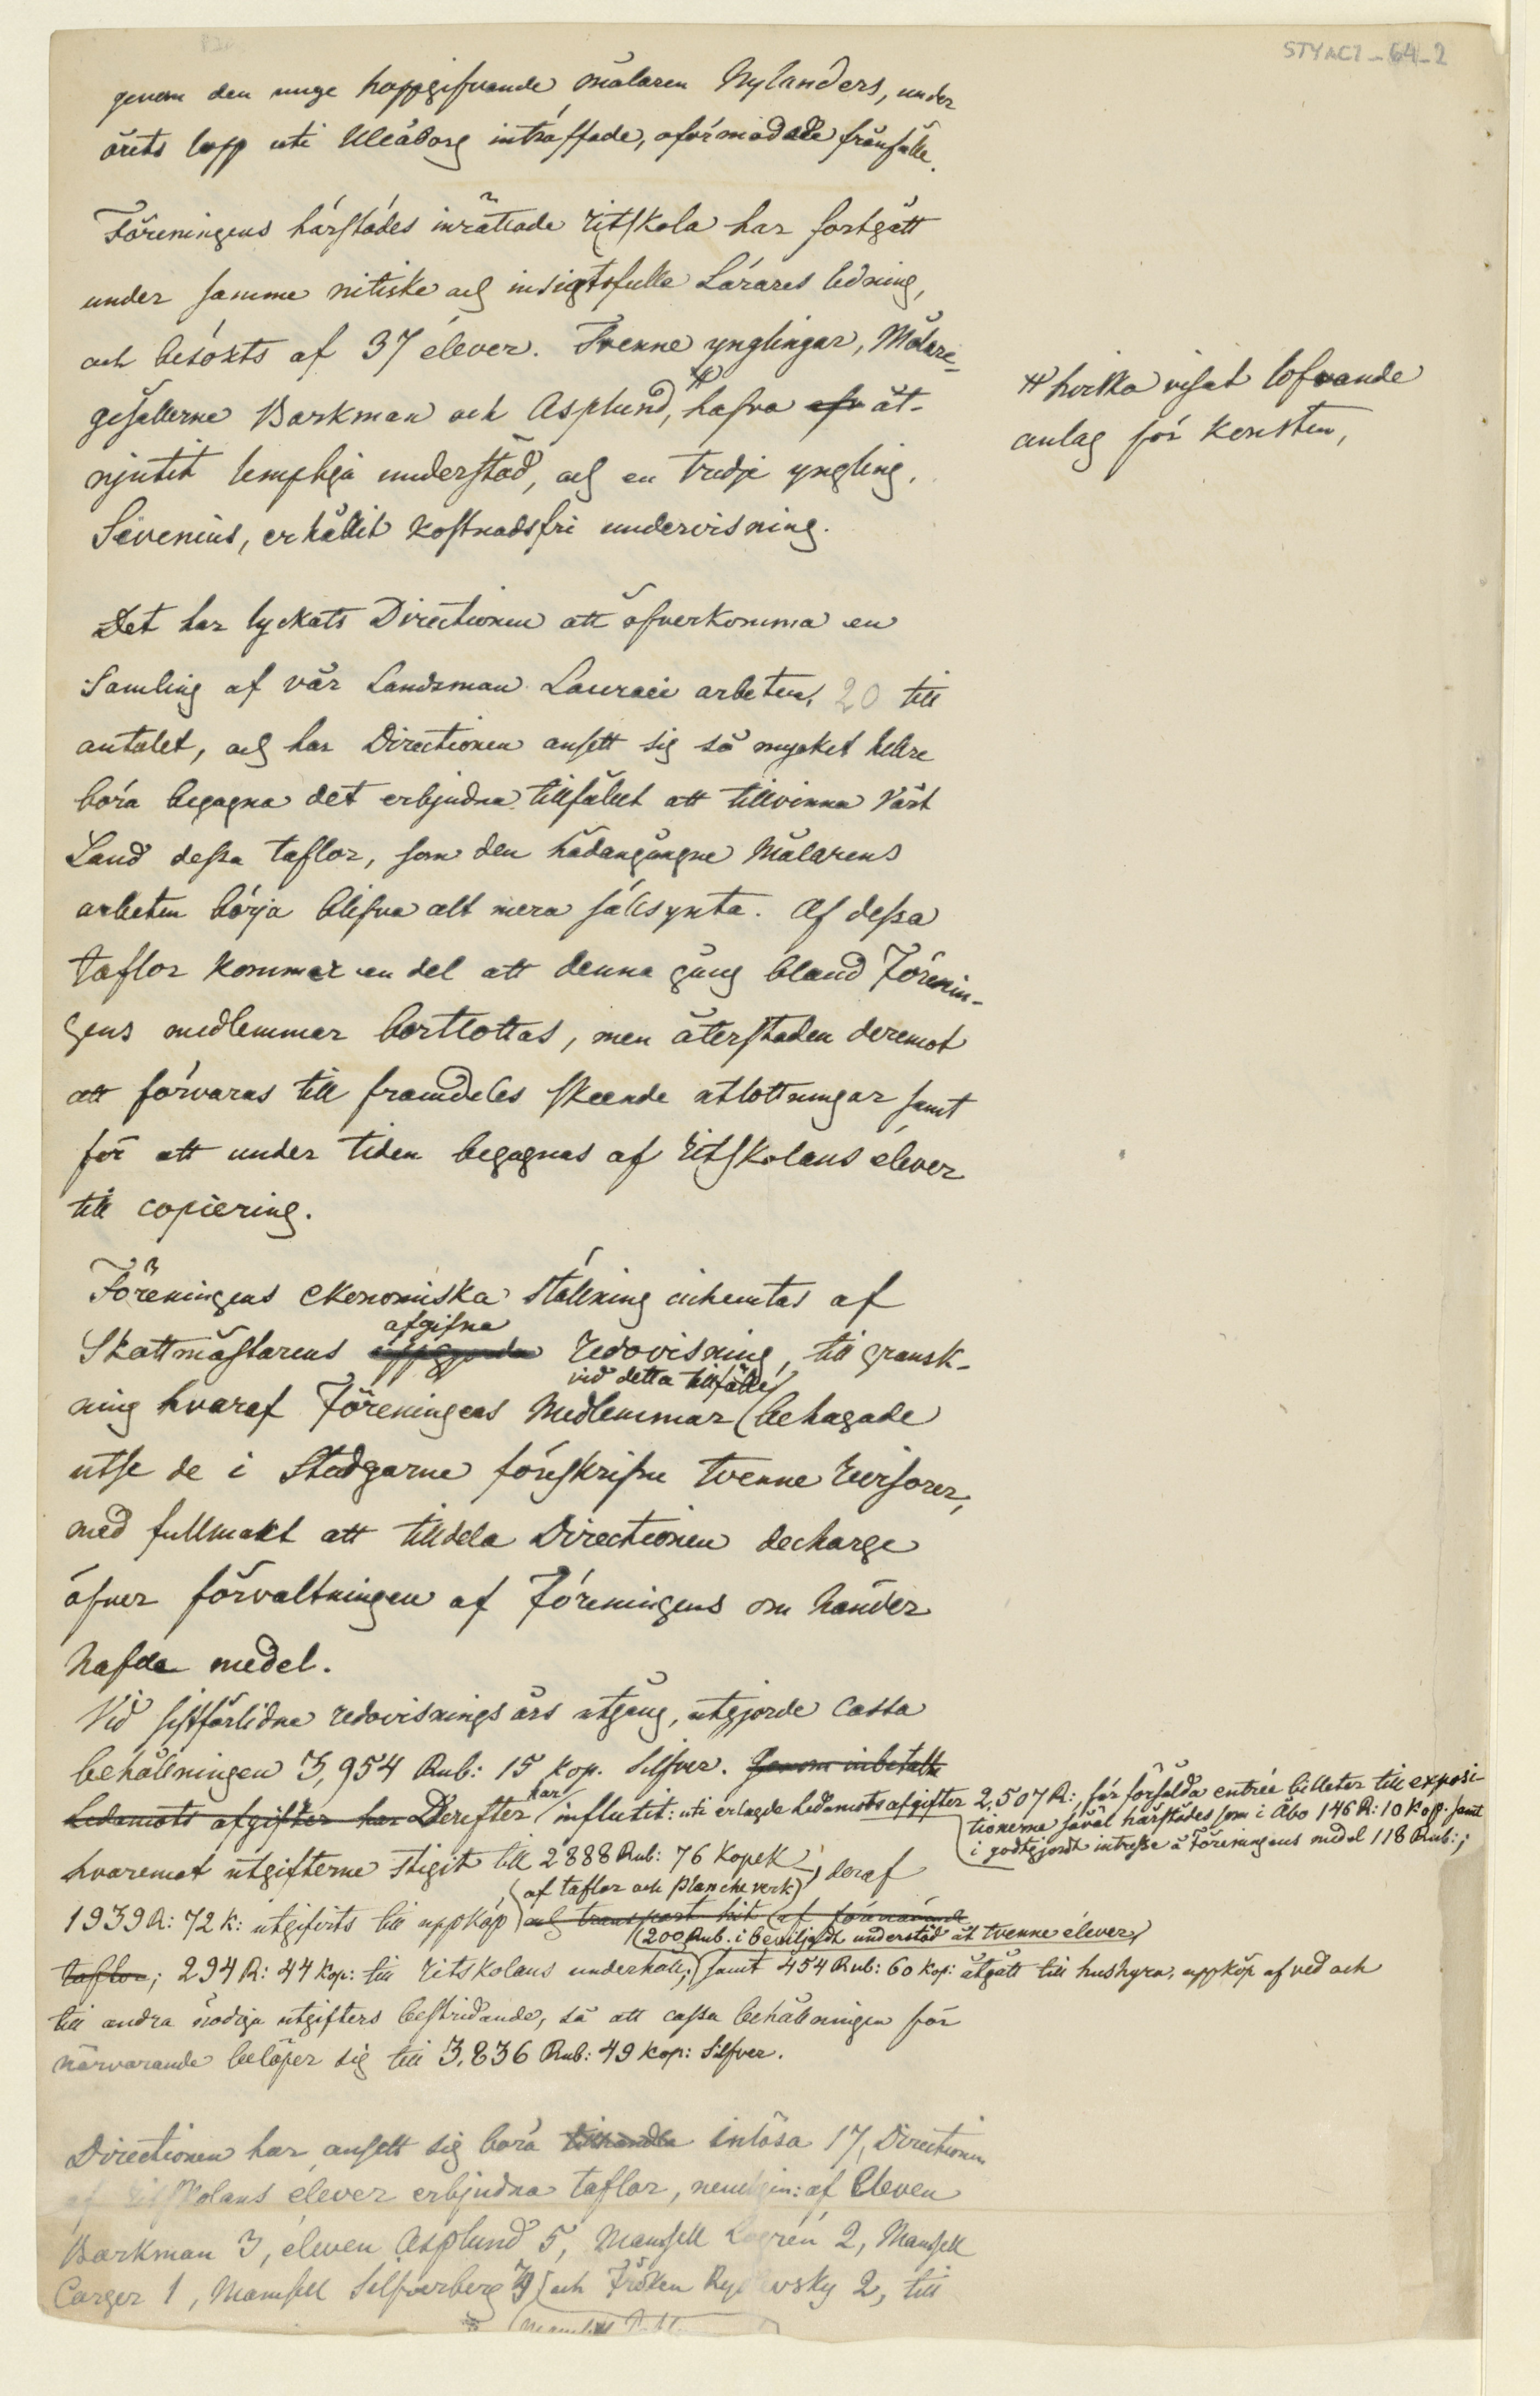 STYAC7_64_2
genom den unge hoppgifvande målaren Nylanders, under
årets lopp uti Uleåborg inträffade, oförmodade frånfälle.
Föreningens härstädes inrättade ritskola har fortgått
under samme nitiske och insigtsfulle Lärares ledning,
och besökts af 37 élever. Tvenne ynglingar, Målare-
gesällerne Barkman och Asplund, # hafva afv åt-
# hvilka visat lofvande
anlag för konsten,
njutit lempliga understöd, och en tredje yngling,
Sevenius, erhållit kostnadsfri undervisning.
Det har lyckats Directionen att öfverkomma en
Samling af vår Landsman Lauraei arbeten, 20 till
antalet, och har Directionen ansett sig så mycket hellre
böra begagna det erbjudna tillfället att tillvinna Vårt
Land dessa taflor, som den hädangångne Målarens
arbeten börja blifva alt mera sällsynta. Af dessa
taflor kommer en del att denna gång bland Förenin-
gens medlemmar bortlottas, men återstoden deremot
att förvaras till framdeles skeende utlottningar samt
för att under tiden begagnas af ritskolans élever
till copiering.
Föreningens ekonomiska ställning inhemtas af
afgifne
Skattmästarens uppgjorda redovisning, till gransk-
vid detta tillfälle
ning hvaraf Föreningens Medlemmar (behagade
utse de i Stadgarne föreskrifne tvenne revisorer,
med fullmakt att tilldela Directionen decharge
öfver förvaltningen af Föreningens om händer
hafda medel.
Vid sistförlidne redovisnings års utgång, utgjorde Cassa
behållningen 3,954 Rub: 15 kop. Silfver. Genom inbetalte
Ledamots afgifter har Derefter har influtit: uti erlagde ledamots afgifter 2,507 R:, för försålda entrée billeter till exposi-
tionerna såväl härstädes som i Åbo 146 R: 10 Kop: samt
i godtgjordt intresse å Föreningens medel 118 Rub:;
hvaremot utgifterne stigit till 2888 Rub: 76 Kopek, deraf
(af taflor och plancheverk)
1939 R: 72 K: utgifvits till uppköp och transport hit (af förenämnde
(200 Rub. i beviljadt understöd åt tvenne élever,)
taflor; 294 R: 44 Kop: till ritskolans underhåll; samt 454 Rub: 60 Kop: åtgått till hushyra, uppköp af ved och
till andra nödiga utgifters bestridande, så att cassa behållningen för
närvarande belöper sig till 3,836 Rub: 49 Kop: Silfver.
Directionen har ansett sig böra tillhandla inlösa 17, Directionen
af ritskolans élever erbjudna taflor, nemligen: af Eleven
Barkman 3, éleven Asplund 5, Mamsell 2, Mamsell
Carger 1, Mamsell Silfverberg och Fröken 2, till